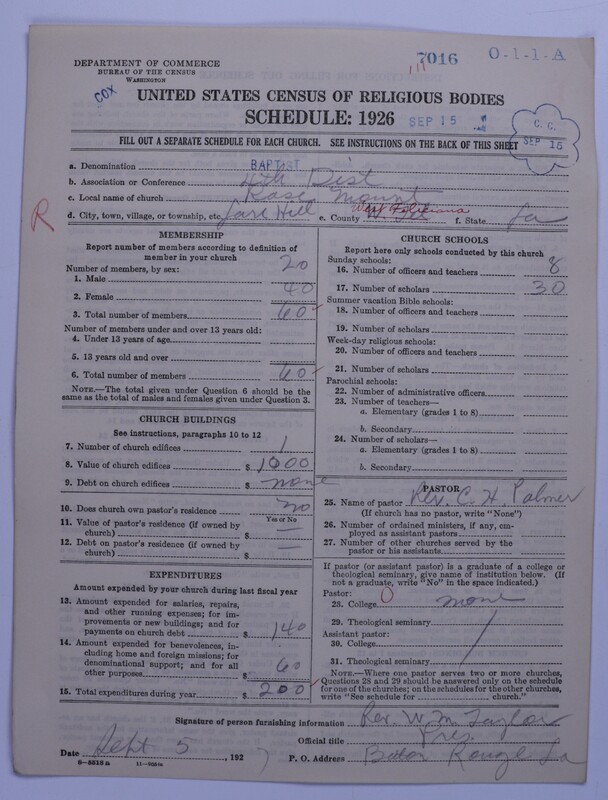 7016 0-1-1-A
DEPARTMENT OF COMMERCE
BUREAU OF THE CENSUS
WASHINGTON
COX
UNITED STATES CENSUS OF RELIGIOUS BODIES
SCHEDULE: 1926 SEP 15
C. C.
SEP 16
FILL OUT A SEPARATE SCHEDULE FOR EACH CHURCH. SEE INSTRUCTIONS ON THE BACK OF THIS SHEET
a. Denomination BAPTIST
b. Association or Conference 4th Dist
c. Local name of church Rose Mount
d. City, town, village, or township, etc. Hill e. County West Feliciana f. State La
R
MEMBERSHIP
Report number of members according to definition of
member in your church
Number of members, by sex:
1. Male 20
2. Female 40
3. Total number of members 60
Number of members under and over 13 years old:
4. Under 13 years of age
5. 13 years old and over
6. Total number of members 60
NOTE.—The total given under Question 6 should be
same as the total of males and females given under Question 3.
CHURCH BUILDINGS
See instructions, paragraphs 10 to 12
7. Number of church edifices 1
8. Value of church edifices $ 1000
9. Debt on church edifices $ none
10. Does church own pastor's residence no
Yes or No
11. Value of pastor's residence (if owned by
church) $ —
12. Debt on pastor's residence (if owned by
church) $ —
EXPENDITURES
Amount expended by your church during last fiscal year
13. Amount expended for salaries, repairs,
and other running expenses; for im-
provements or new buildings; and for
payments on church debt $ 140
14. Amount expended for benevolences, in-
cluding home and foreign missions; for
denominational support; and for all
other purposes $ 60
15. Total expenditures during year $ 200
CHURCH SCHOOLS
Report here only schools conducted by this church
Sunday schools:
16. Number of officers and teachers 8
17. Number of scholars 30
Summer vacation Bible schools:
18. Number of officers and teachers
19. Number of scholars
Week-day religious schools:
20. Number of officers and teachers
21. Number of scholars
Parochial schools:
22. Number of administrative officers
23. Number of teachers—
a. Elementary (grades 1 to 8)
b. Secondary
24. Number of scholars—
a. Elementary (grades 1 to 8)
b. Secondary
PASTOR
25. Name of pastor Rev. C. H. Palmer
(If church has no pastor, write "None")
26. Number of ordained ministers, if any, em-
ployed as assistant pastors
27. Number of other churches served by the
pastor or his assistants
If pastor (or assistant pastor) is a graduate of a college or
theological seminary, give name of institution below. (If
not a graduate, write "No" in the space indicated.)
Pastor:
28. College O none
29. Theological seminary
Assistant pastor:
30. College
31. Theological seminary
NOTE.—Where one pastor serves two or more churches,
Questions 28 and 29 should be answered only on the schedule
for one of the churches; on the schedules for the other churches,
write "See schedule for church."
Signature of person furnishing information Rev. W. M. Taylor
Official title Pres.
Date Sept 5, 192 7 P. O. Address Baton Rouge La
8—5518 a